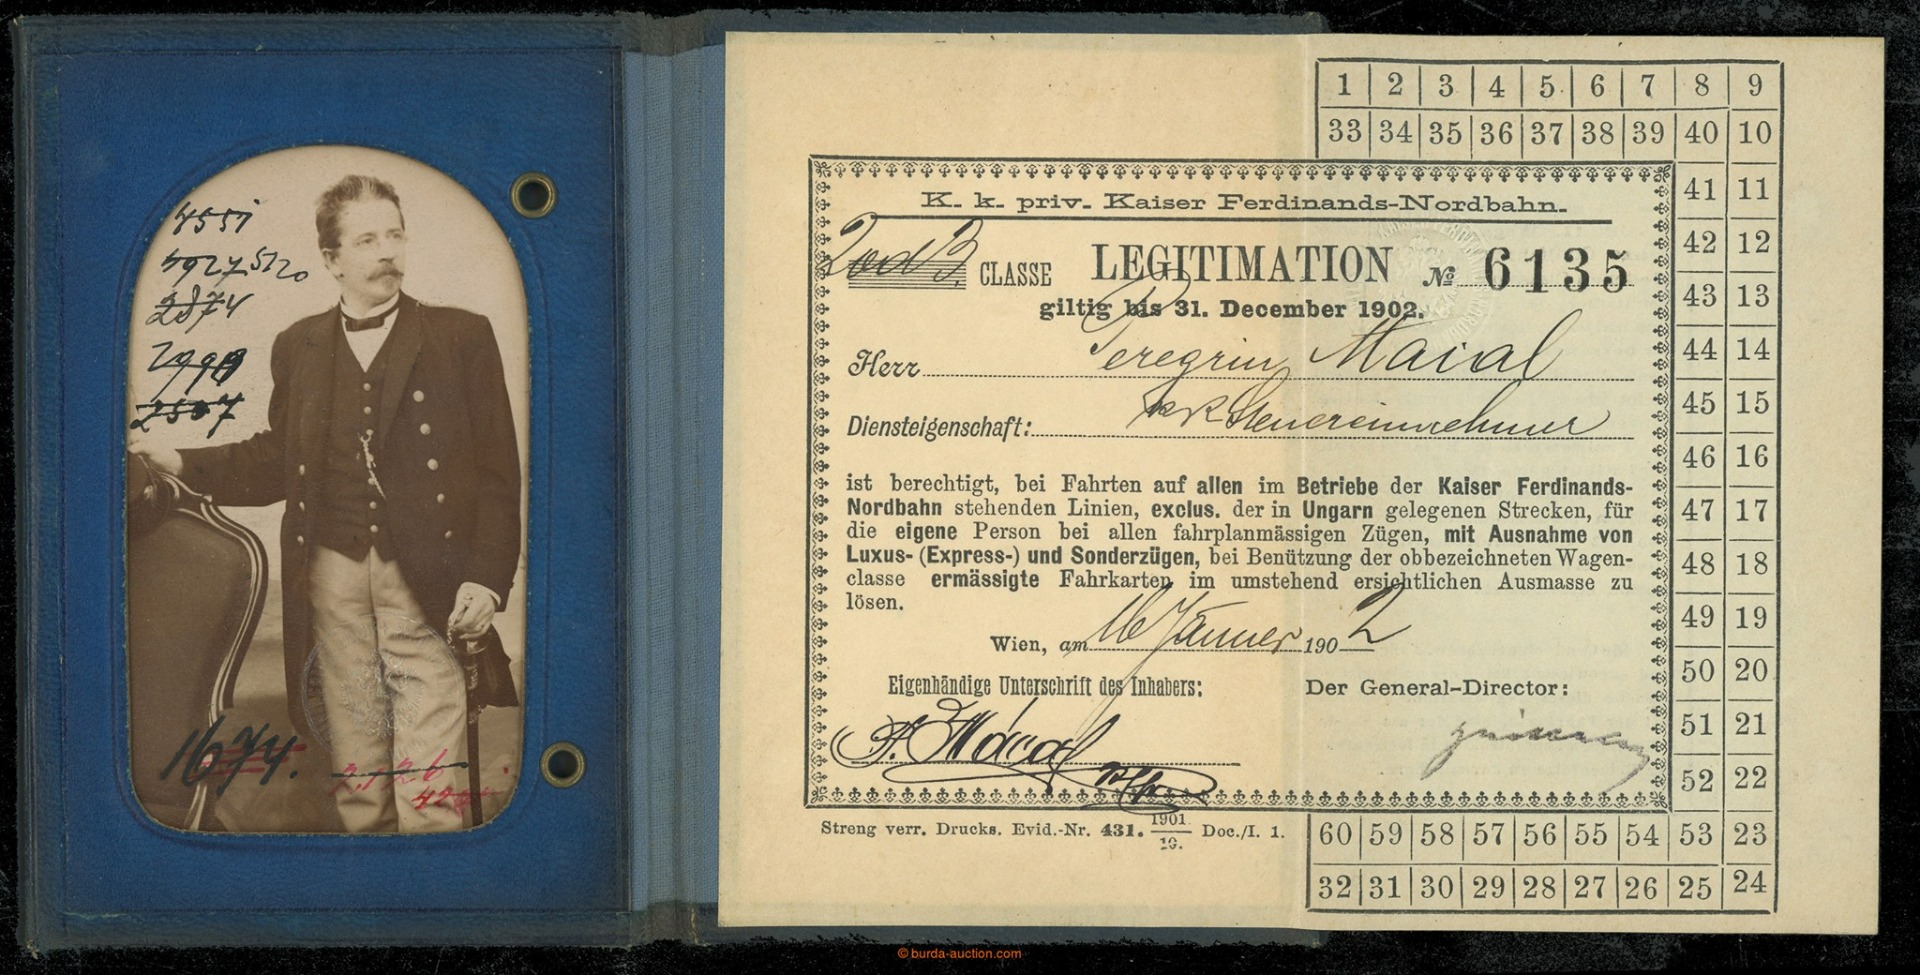 4551
4927 5120
2874
2990
2507
1674.
K. k. priv. Kaiser Ferdinands-Nordbahn.
CLASSE LEGITIMATION № 6135
giltig bis 31. December 1902.
Herr Peregrin Maial
Diensteigenschaft: kk Steuereinnehmer
ist berechtigt, bei Fahrten auf allen im Betriebe der Kaiser Ferdinands-
Nordbahn stehenden Linien, exclus. der in Ungarn gelegenen Strecken, für
die eigene Person bei allen fahrplanmässigen Zügen, mit Ausnahme von
Luxus- (Express-) und Sonderzügen, bei Benützung der obbezeichneten Wagen-
classe ermässigte Fahrkarten im umstehend ersichtlichen Ausmasse zu
lösen.
Wien, am 16 Jänner 1902
Eigenhändige Unterschrift des Inhabers:
Der General-Director:
Streng verr. Drucks. Evid.-Nr. 431. 1901/10. Doc./I. 1.
1 2 3 4 5 6 7 8 9
33 34 35 36 37 38 39 40 10
41 11
42 12
43 13
44 14
45 15
46 16
47 17
48 18
49 19
50 20
51 21
52 22
60 59 58 57 56 55 54 53 23
32 31 30 29 28 27 26 25 24
© burda-auction.com